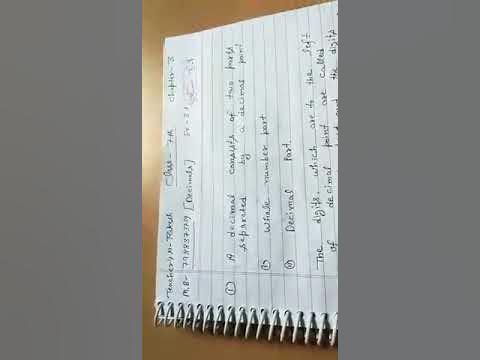 Teacher's N- Rakesh Class- 7th Chapter-3
M.B- [Decimals] Ex- 3.1
① A decimal consists of two parts
seprated by a decimal point
① Whole number part
② Decimal Part.
The digits, which are to the left
of decimal point are called
and the digits